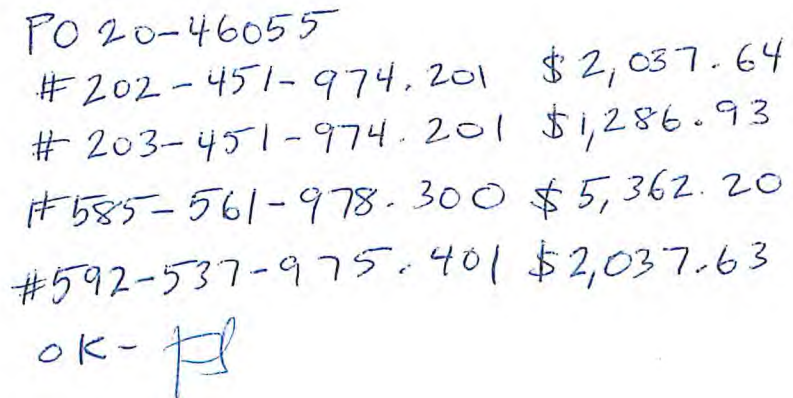 PO 20-46055
#202-451-974.201 $2,037.64
#203-451-974.201 $1,286.93
#585-561-978.300 $5,362.20
#592-537-975.401 $2,037.63
OK-